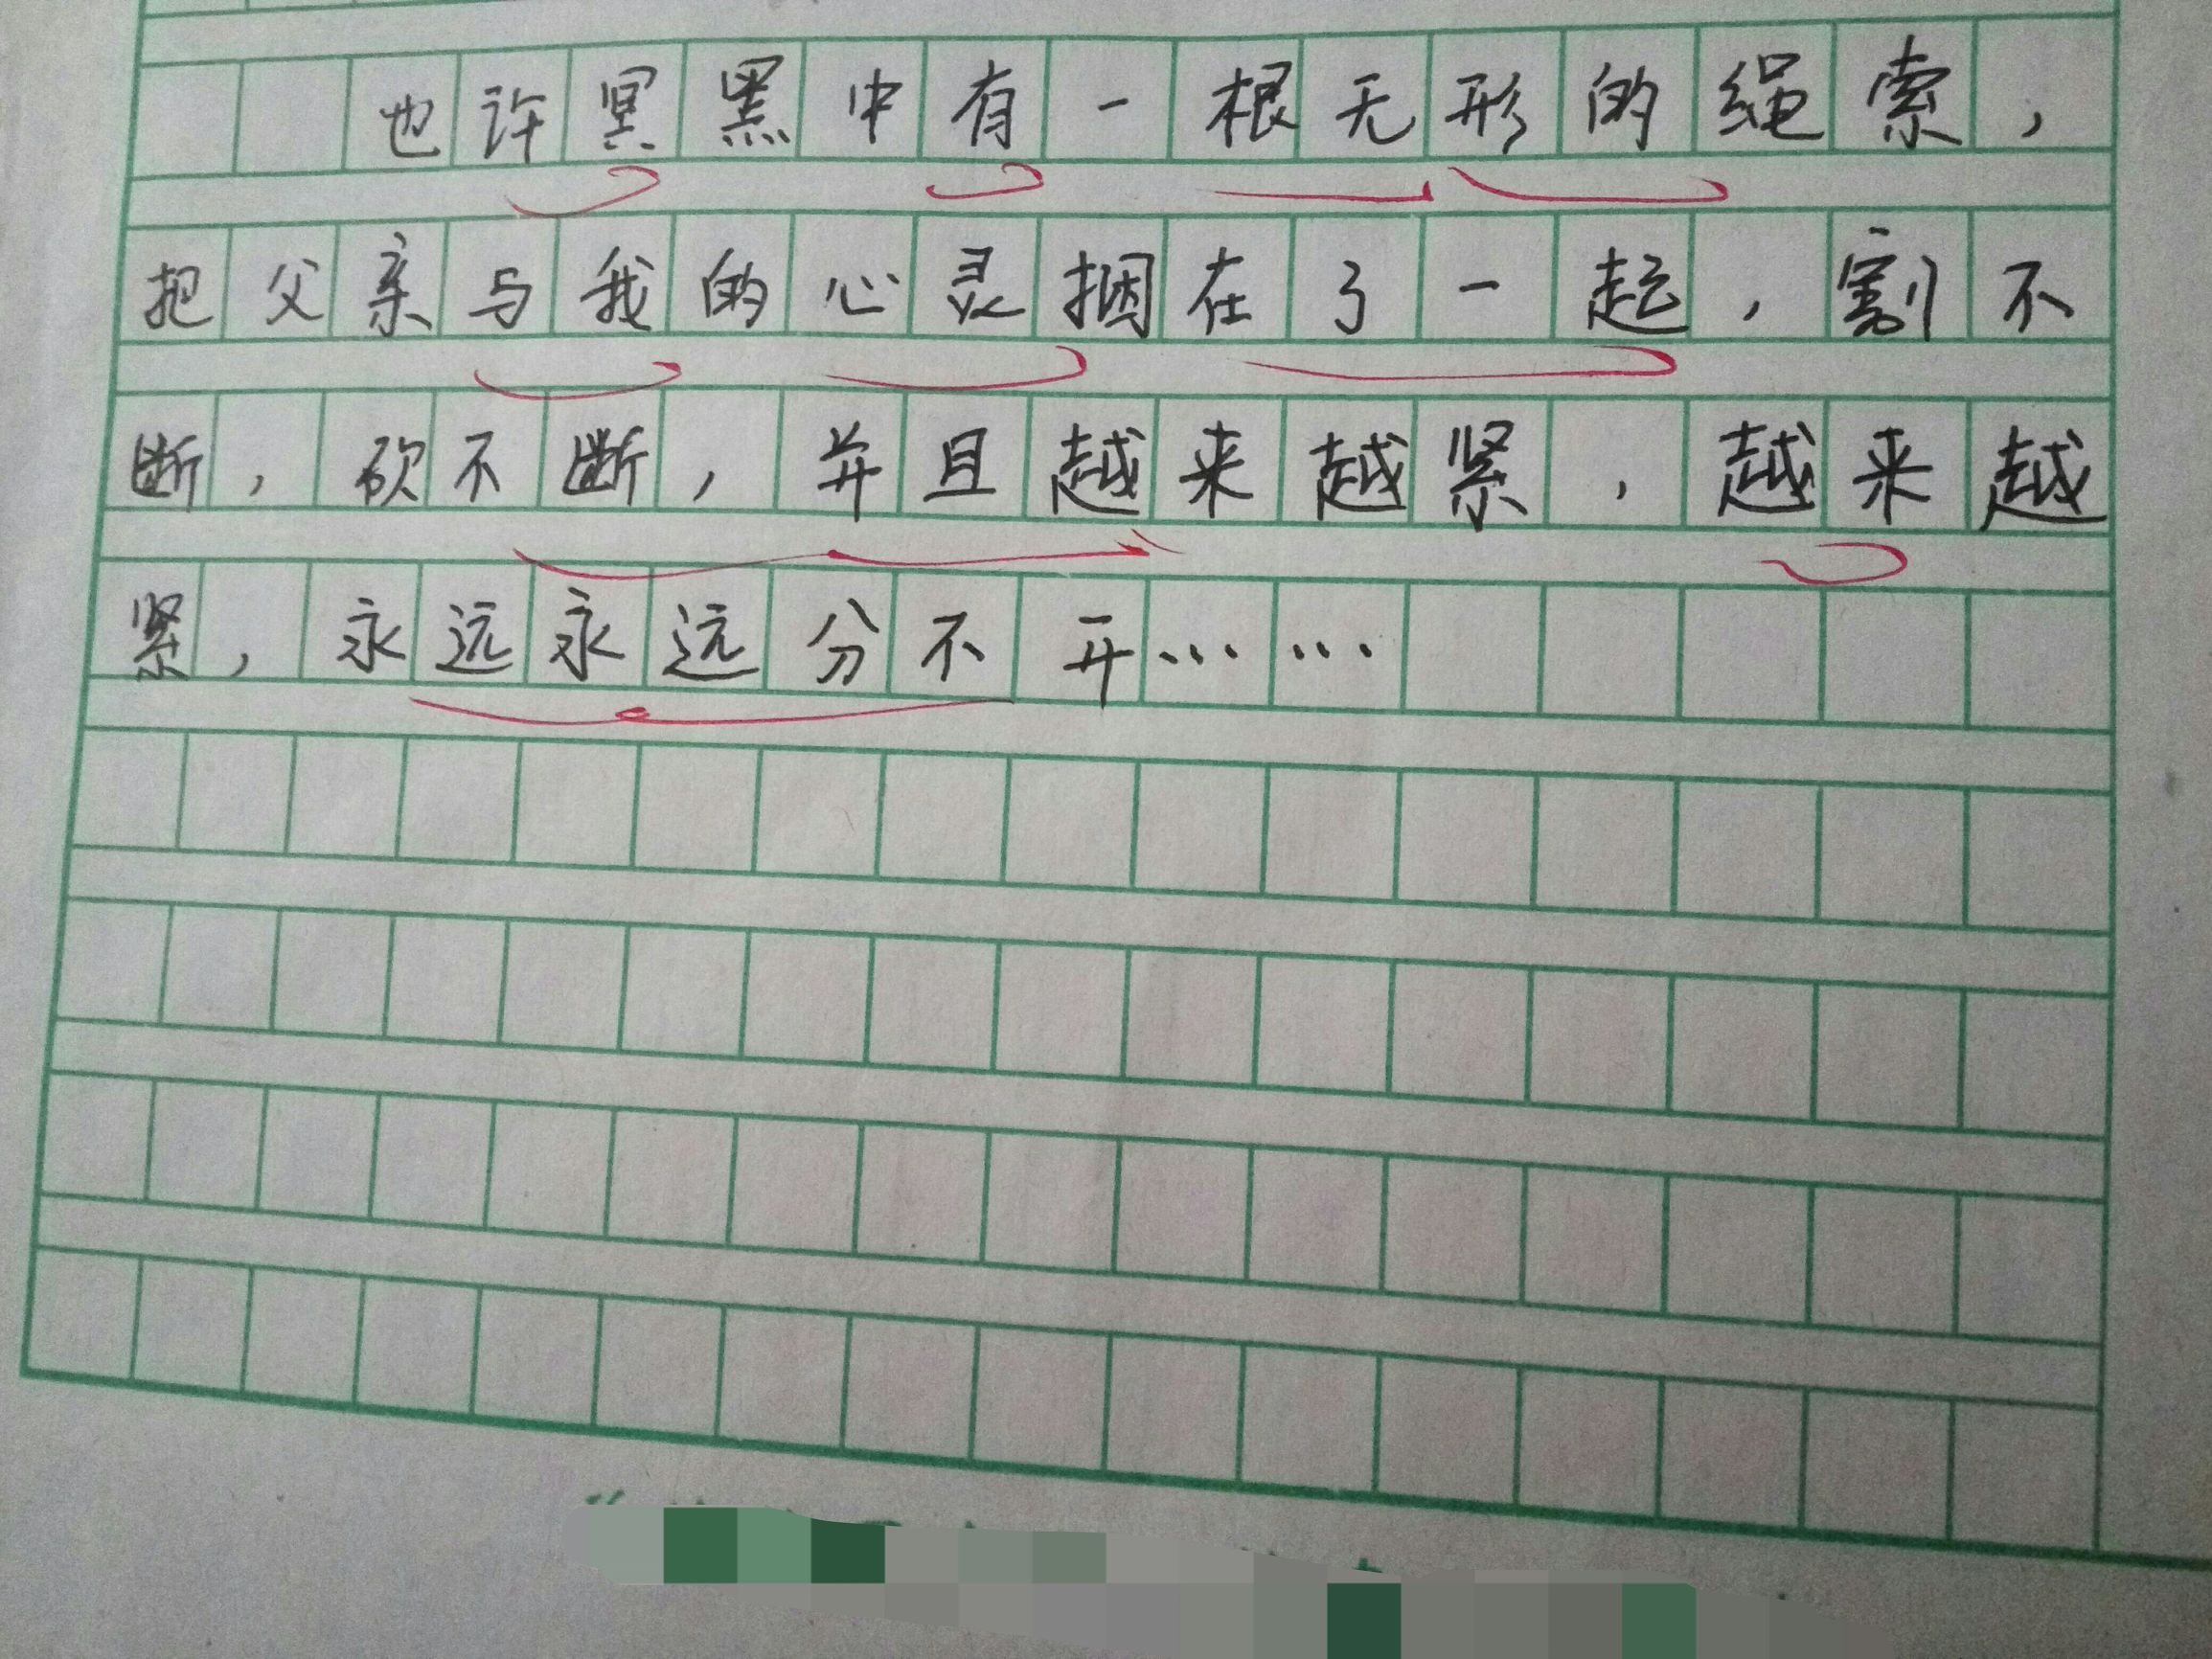 也许冥黑中有一根无形的绳索，
把父亲与我的心灵捆在了一起，割不
断，砍不断，并且越来越紧，越来越
紧，永远永远分不开……